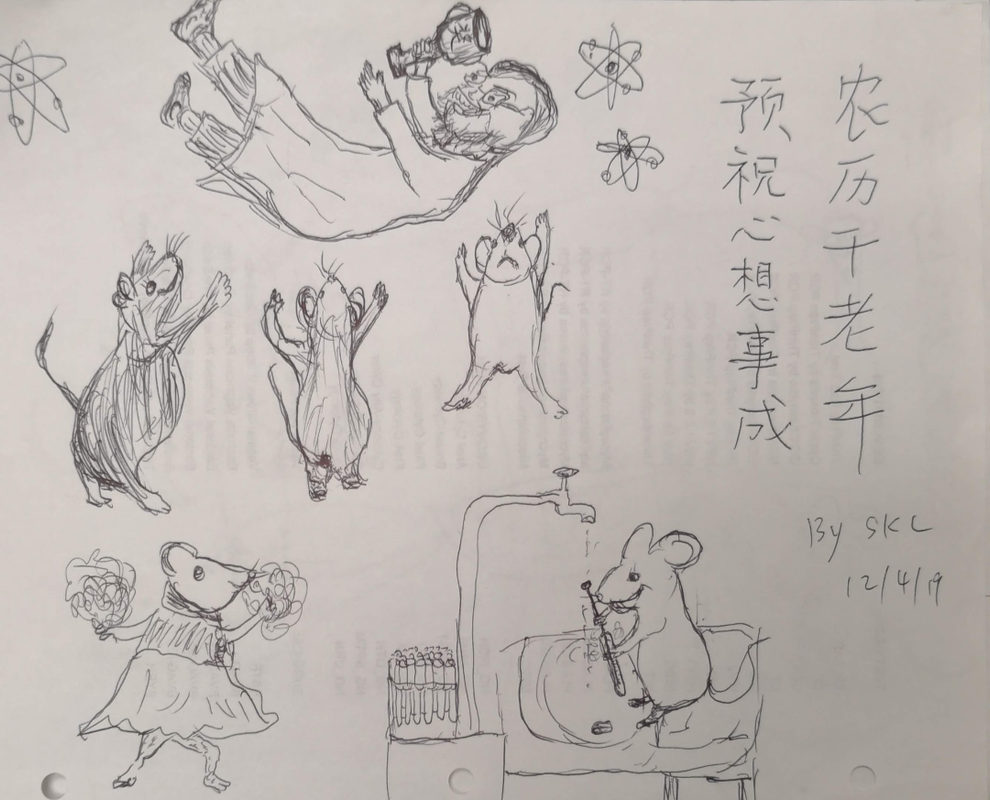 农历千老年
预祝心想事成
By SKL
12/4/19